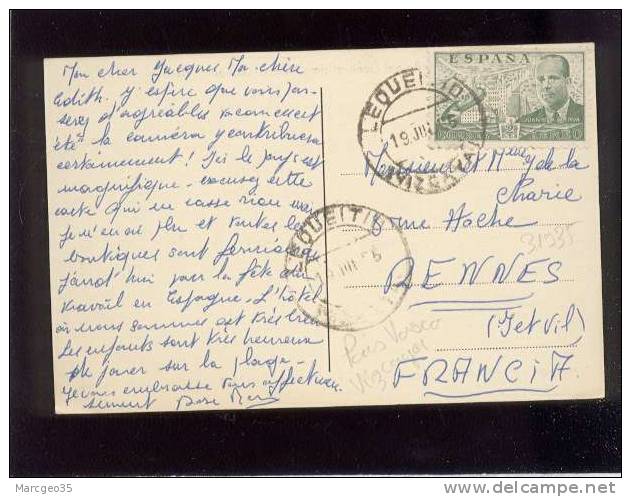 Mon cher Jacques Ma chère
Edith. J'espère que vous pas-
serez d'agréables vacances cet
été la caméra y contribuera
certainement! Ici le pays est
magnifique. excusez cette
carte qui ne casse rien mais
je n'en ai plus et toutes les
boutiques sont fermées
jourd'hui pour la fête du
travail en Espagne. L'hôtel
où nous sommes est très bien
Les enfants sont très heureux
de jouer sur la plage.
Je vous embrasse tous affectueu-
sement Rose
ESPAÑA
LEQUEITIO
19 JUL 55
VIZCAYA
Monsieur et Mme J de la
Charie
31935
LEQUEITIO
19 JUL 55
RENNES
(Ile et Vil)
FRANCIA
Pais Vasco
Vizcaya
Margeo35
www.delcampe.net